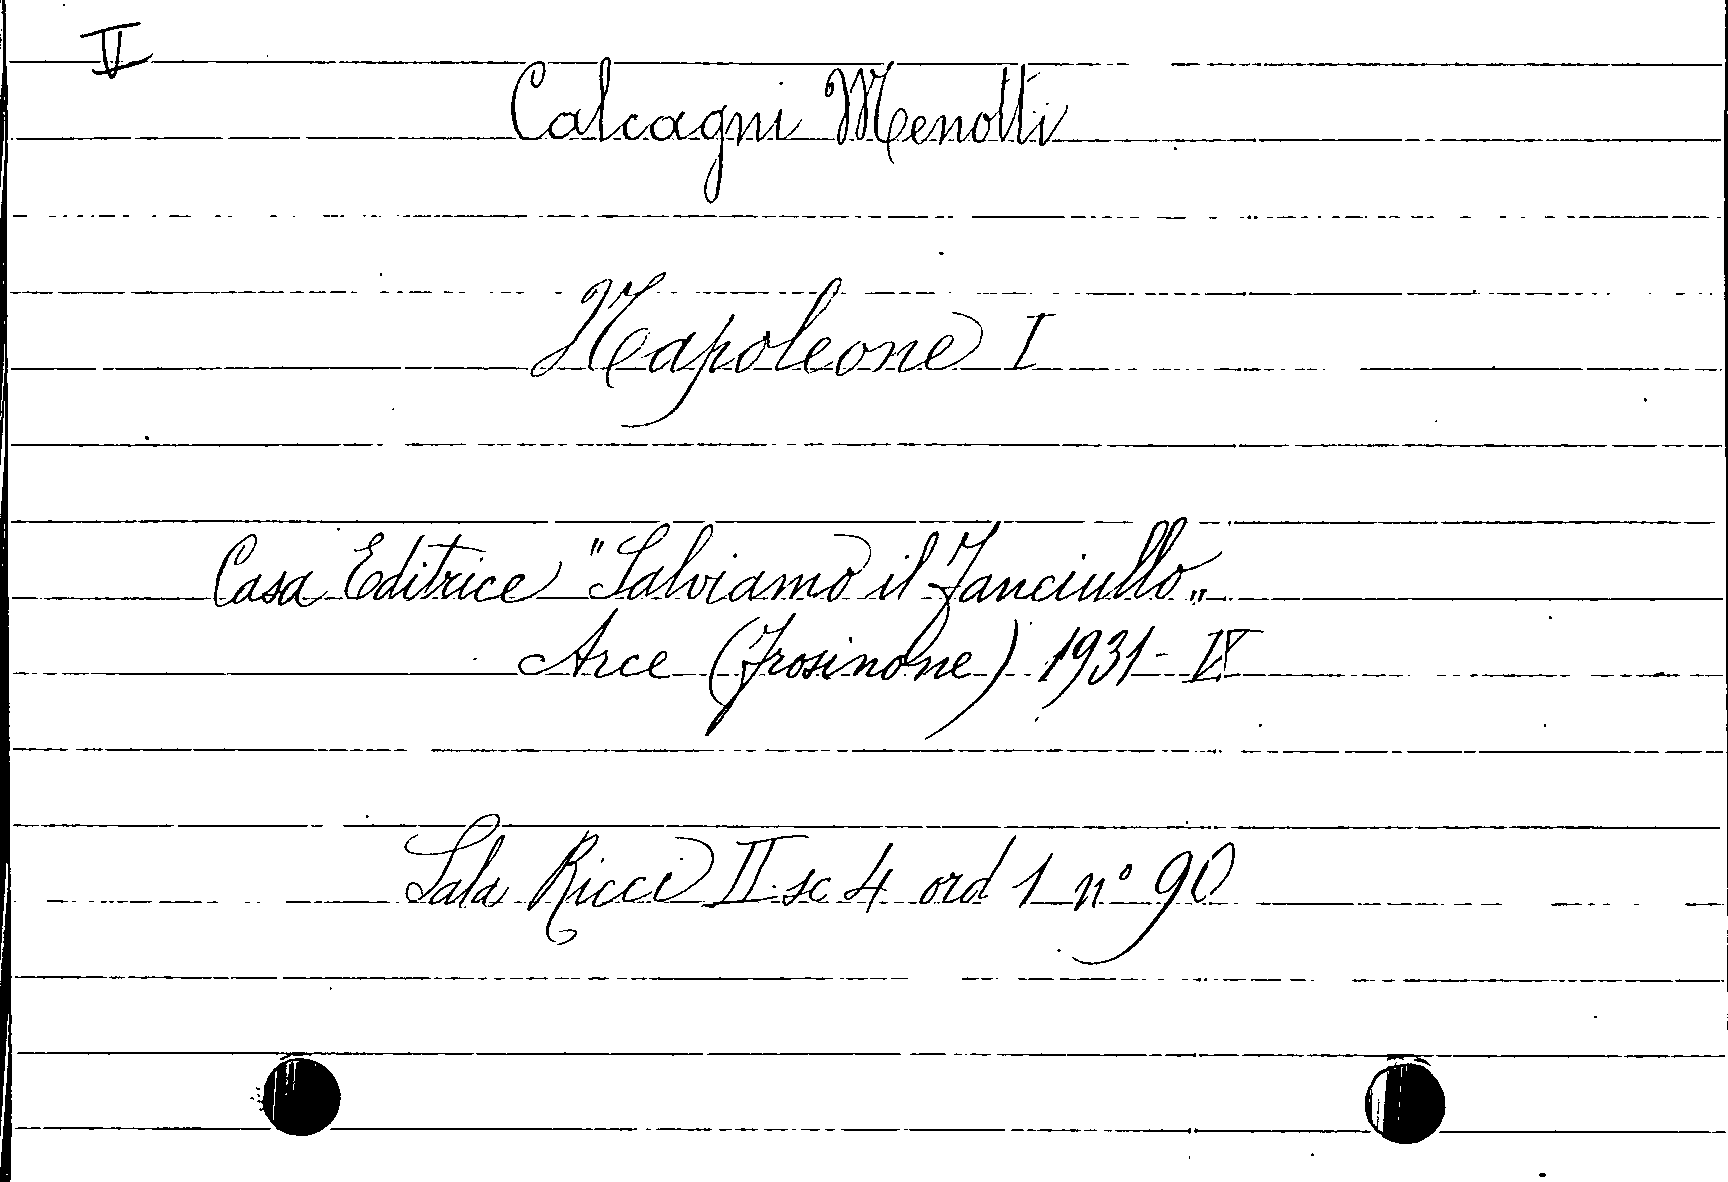 V
Calcagni Menotti
Napoleone I
Casa Editrice "Salviamo il Fanciullo„
Arce (Frosinone) 1931 - IX
Sala Ricci II sc 4 ord 1 n° 90